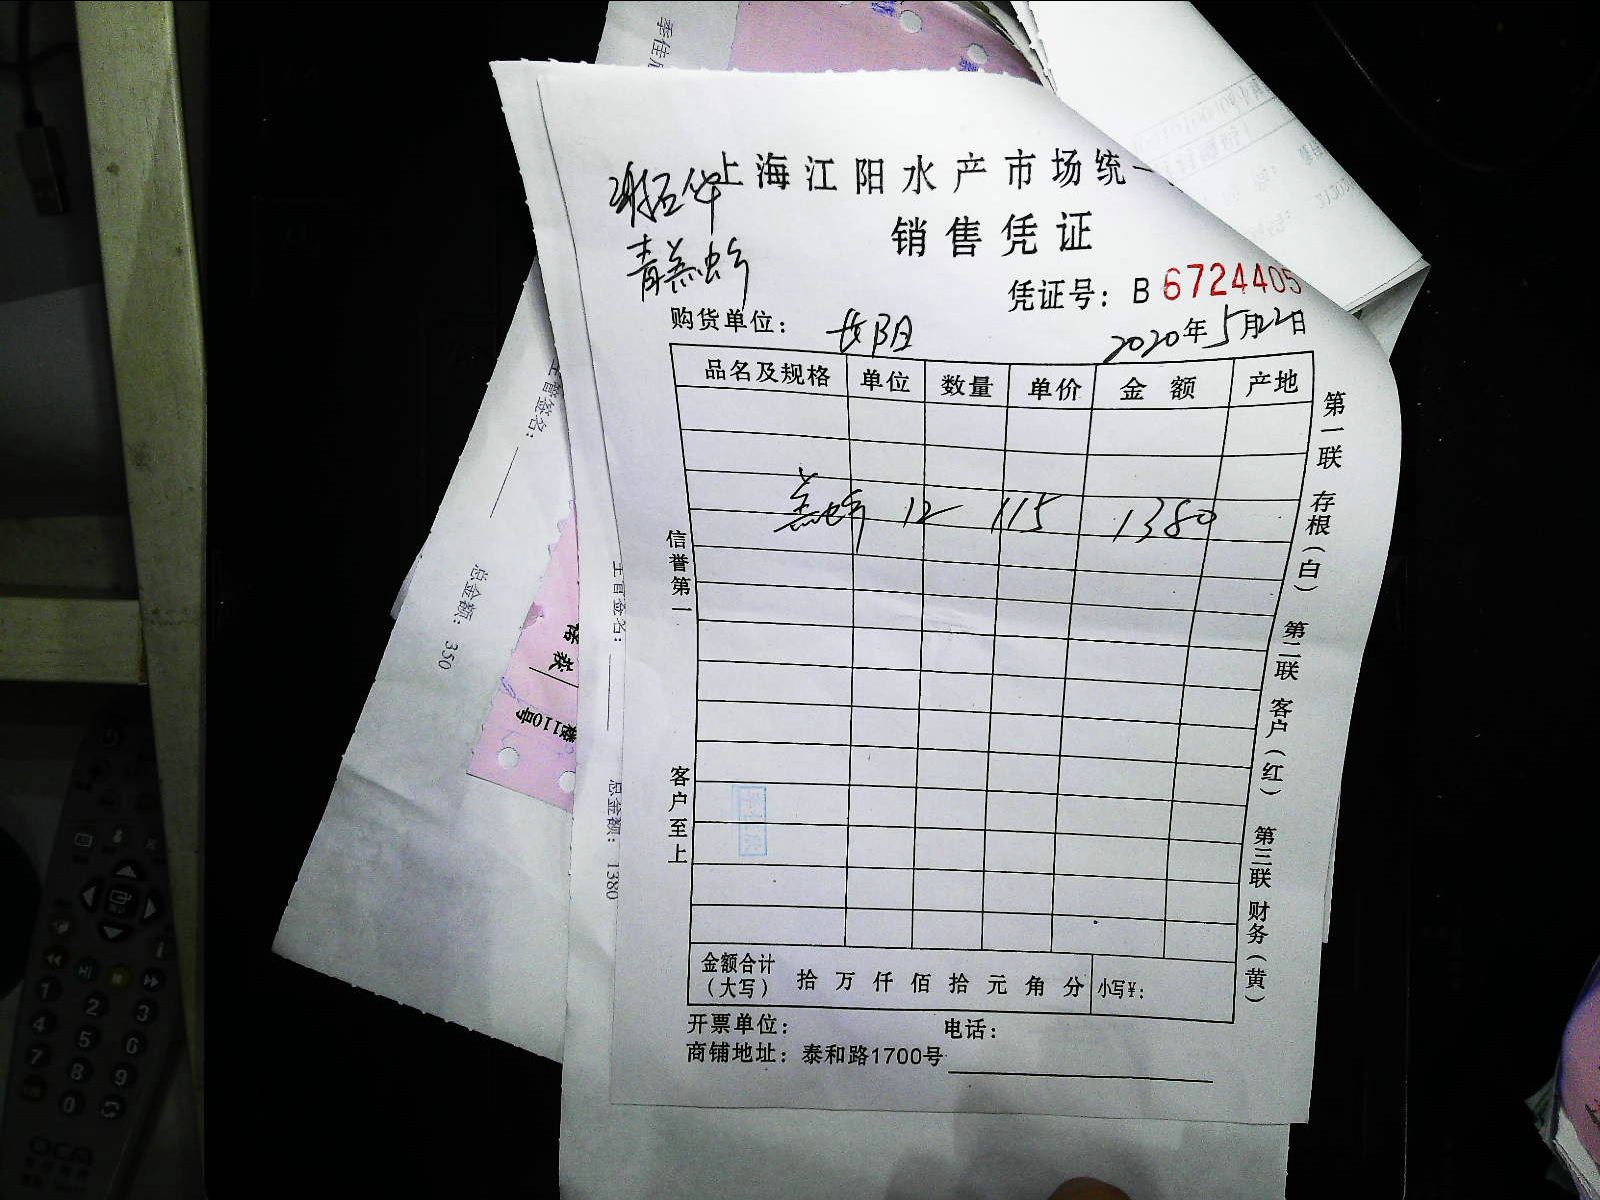 上海江阳水产市场统一
销售凭证
凭证号：B 6724405
购货单位：长阳
2020年5月22日
品名及规格 单位 数量 单价 金额 产地
羔蟹 12 115 1380
信誉第一
客户至上
第一联 存根（白） 第二联 客户（红） 第三联 财务（黄）
金额合计（大写） 拾万仟佰拾元角分 小写¥：
开票单位： 电话：
商铺地址：泰和路1700号
主管签名：
总金额：350
主管签名：
总金额：1380
楼110号